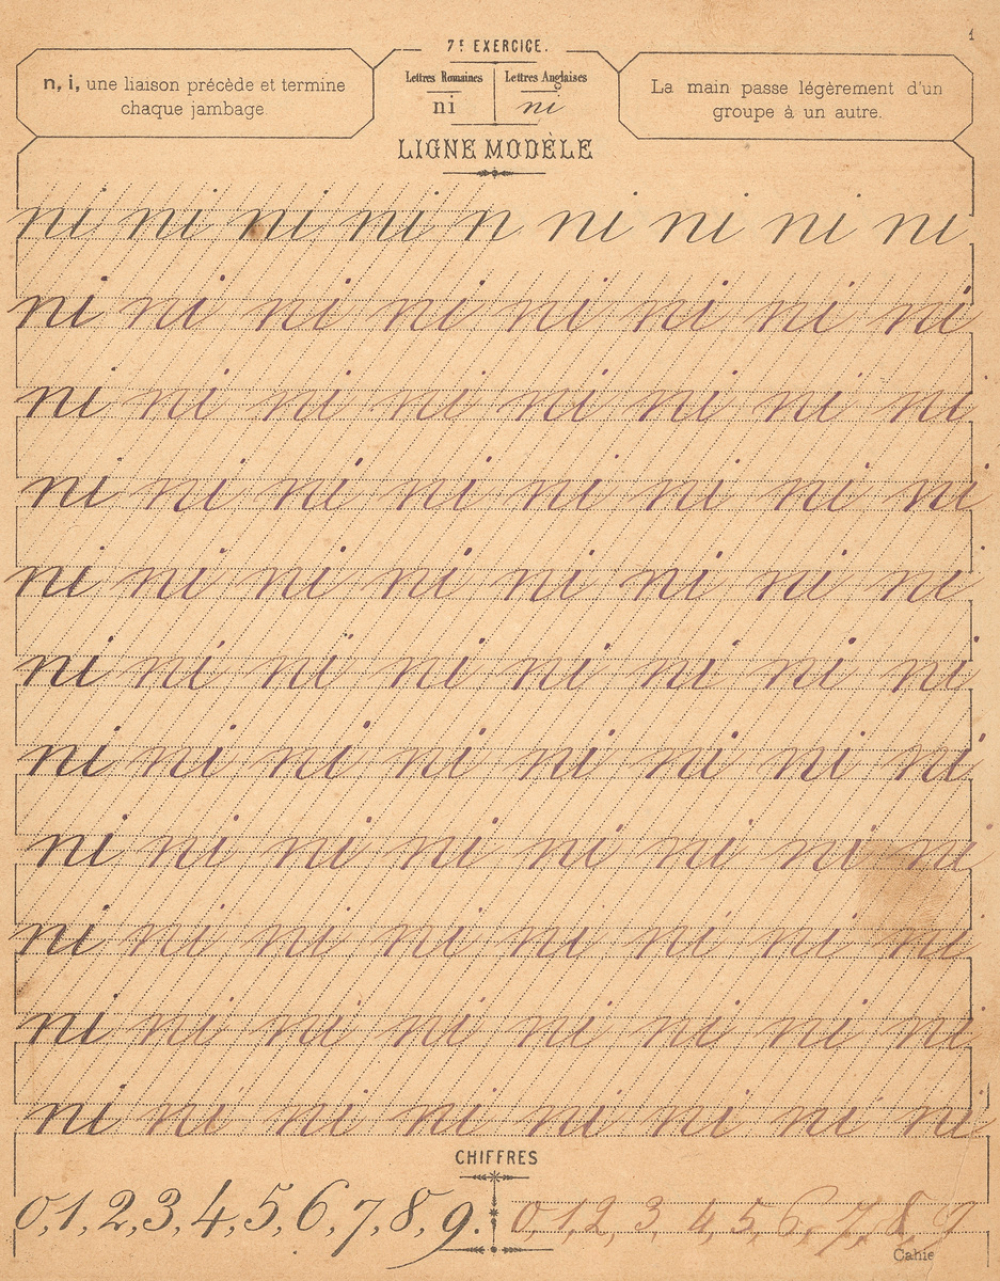 1
7e EXERCICE.
n, i, une liaison précède et termine
chaque jambage
Lettres Romaines
ni
Lettres Anglaises
ni
La main passe légèrement d'un
groupe à un autre.
LIGNE MODÈLE
ni ni ni ni n ni ni ni ni
ni ni ni ni ni ni ni ni
ni ni ni ni ni ni ni ni
ni ni ni ni ni ni ni ni
ni ni ni ni ni ni ni ni
ni ni ni ni ni ni ni ni
ni ni ni ni ni ni ni ni
ni ni ni ni ni ni ni ni
ni ni ni ni ni ni ni ni
ni ni ni ni ni ni ni ni
ni ni ni ni ni ni ni ni
CHIFFRES
0,1,2,3,4,5,6,7,8,9. 0,1,2 3 4,5,6,7,8,9
Cahie